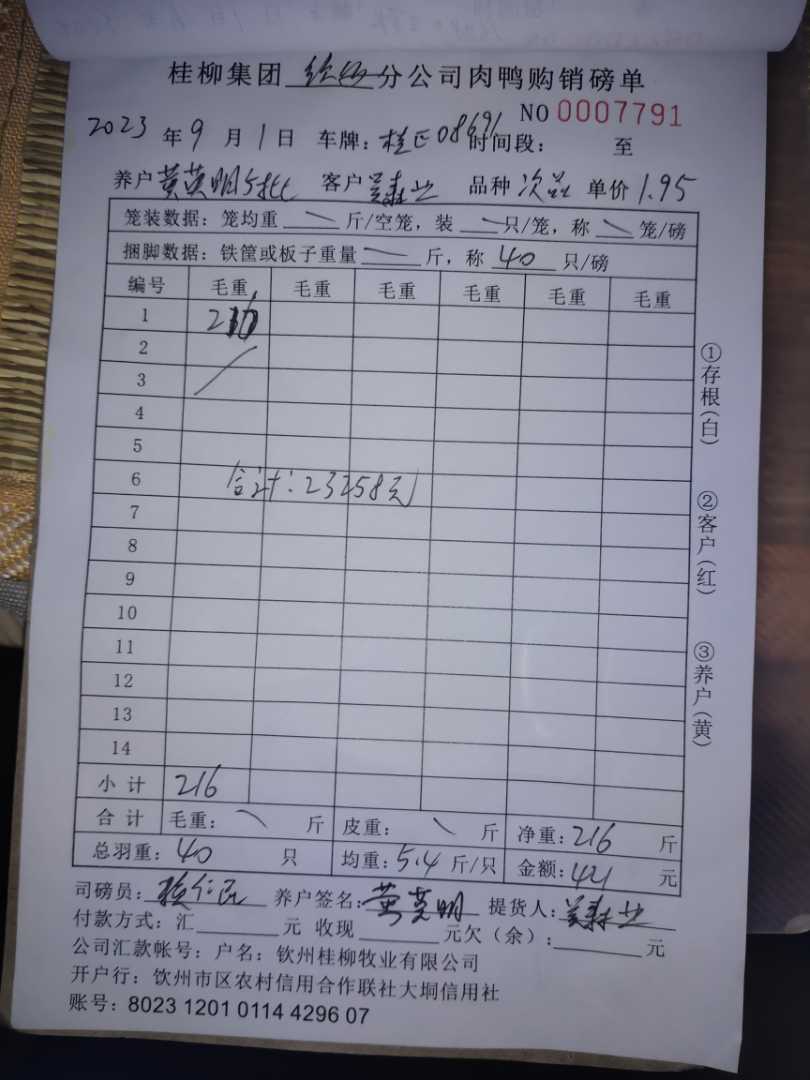 桂柳集团 分公司肉鸭购销磅单
NO 0007791
2023 年 9 月 1 日 车牌: 桂E08691 时间段: 至
养户 黄英明 客户 品种 次品 单价 1.95
笼装数据: 笼均重 斤/空笼, 装 只/笼, 称 笼/磅
捆脚数据: 铁筐或板子重量 斤, 称 40 只/磅
编号 毛重 毛重 毛重 毛重 毛重 毛重
1 216
2
3
4
5
6 合计: 23258元
7
8
9
10
11
12
13
14
小计 216
合计 毛重: 斤 皮重: 斤 净重: 216 斤
总羽重: 40 只 均重: 5.4 斤/只 金额: 421 元
司磅员: 养户签名: 黄英明 提货人:
付款方式: 汇 元 收现 元欠(余): 元
公司汇款帐号: 户名: 钦州桂柳牧业有限公司
开户行: 钦州市区农村信用合作联社大垌信用社
账号: 8023 1201 0114 4296 07
①存根(白)
②客户(红)
③养户(黄)